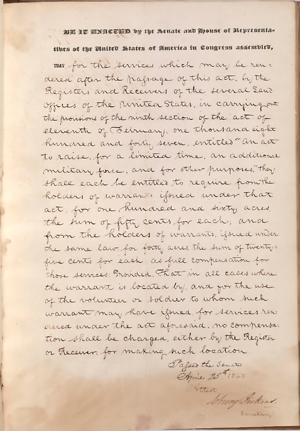 BE IT ENACTED by the Senate and House of Representa-
tives of the United States of America in Congress assembled,
THAT for the services which may be ren-
dered after the passage of this act, by the
Registers and Receivers of the several Land
offices of the United States, in carrying out
the provisions of the ninth section of the act of
eleventh of February, one thousand eight
hundred and forty seven, entitled "An act
to raise, for a limited time, an additional
military force, and for other purposes," they
shall each be entitled to require from the
holders of warrants issued under that
act, for one hundred and sixty acres
the sum of fifty cents for each; and
from the holders of warrants, issued under
the same law, for forty acres the sum of twenty-
five cents for each, as full compensation for
those services: Provided, That in all cases where
the warrant is located by, and for the use
of the volunteer or soldier to whom such
warrant may have issued for services ren-
dered under the act aforesaid, no compensa-
tion shall be charged, either by the Register
or Receiver for making such location
Passed the Senate
25th
Attest
Secretary